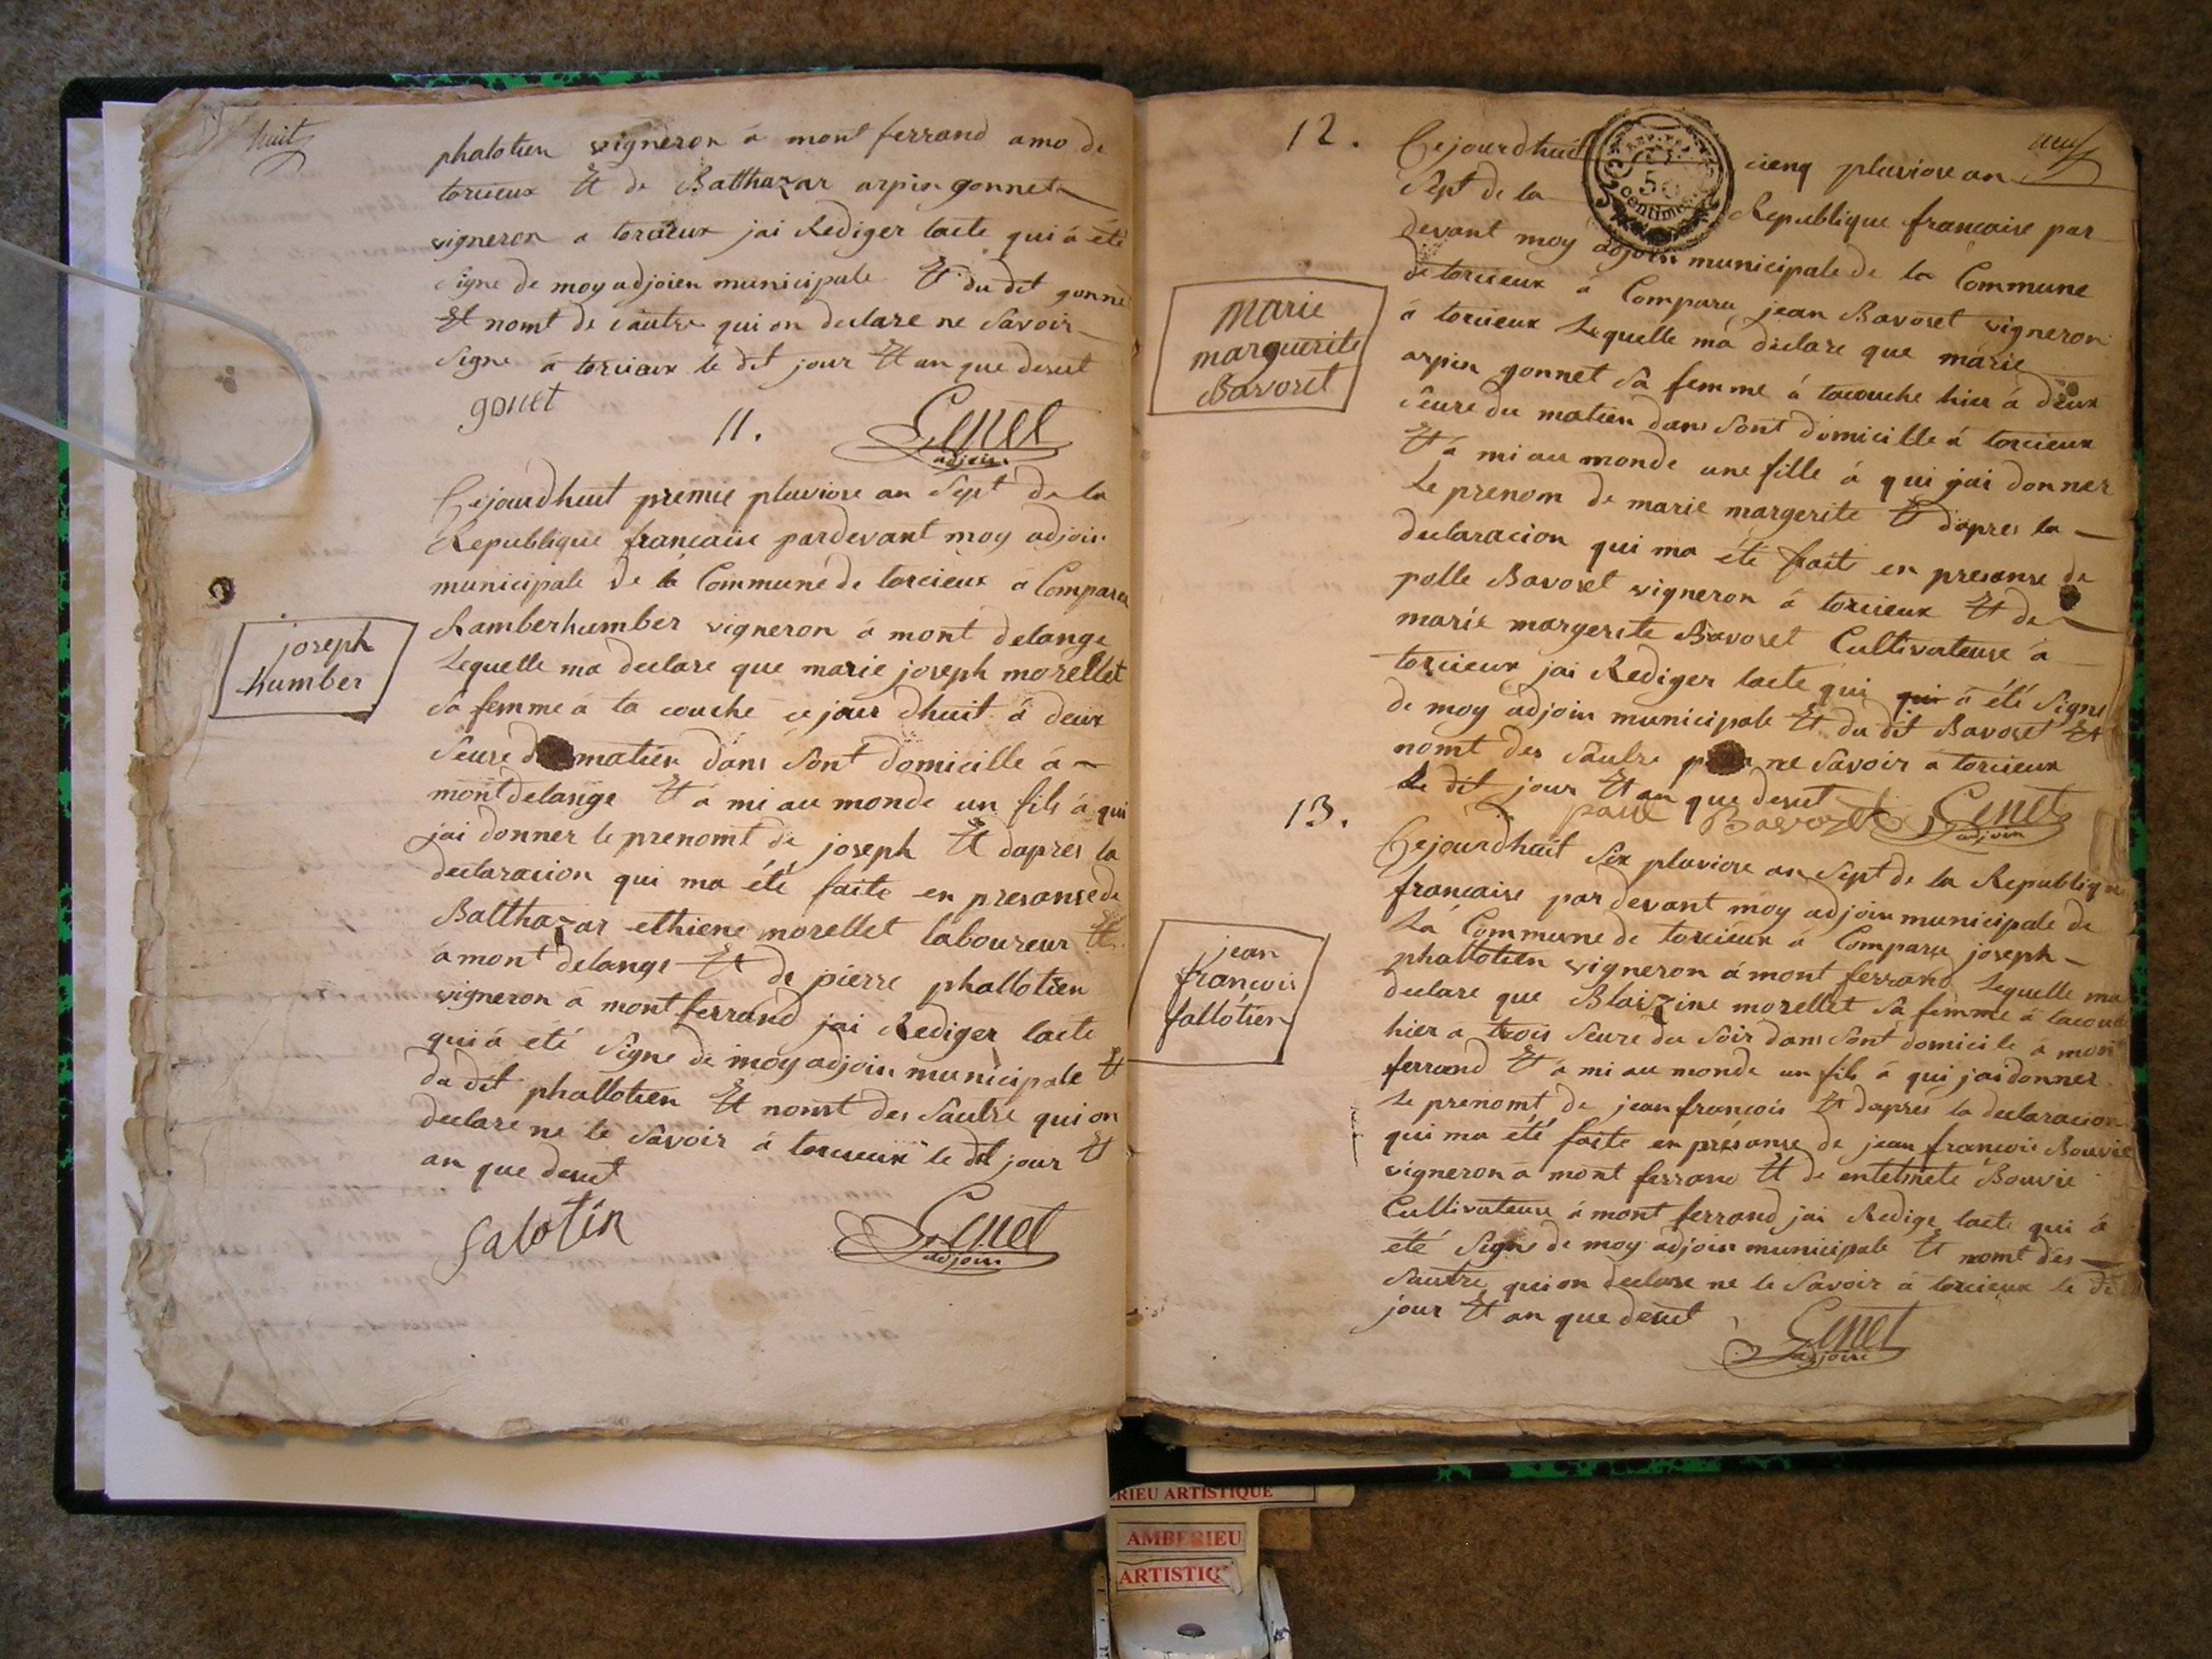 huit
phalotien vigneron á mont ferrand amo de
torcieux Et de Balthazar arpin gonnet
vigneron a torcieux jai Rediger lacte qui á été
signe de moy adjoien municipale Et du dit gonne
Et nomt de sautre qui on declare ne savoir
signe á torcieux le dit jour Et an que desut
gonet
11.
Genet
adjoin
Cejourdhuit premie pluviose an Sept de la
Republique francaise pardevant moy adjoin
municipale de la Commune de torcieux á Comparu
Ramberhumber vigneron á mont delange
Lequelle ma declare que marie joseph morellet
Sa femme á ta couche ce jour dhuit á deux
Seure matien dans Sont domicille á
montdelange Et á mi au monde un fils á qui
jai donner le prenomt de joseph Et dapres la
declaracion qui ma été faite en presansede
Balthazar ethiene morellet laboureur Et
á mont delange Et de pierre phallotien
vigneron á mont ferrand jai Rediger lacte
qui á été Signe de moy adjoin municipale Et
du dit phallotien Et nomt des Sautre qui on
declare ne le Savoir á torcieux le dit jour Et
an que desut
falotin
Genet
adjoin
joseph
humber
neuf
12.
Cejourdhuit cienq pluviose an
Sept de la Republique francaise par
50
Centimes
devant moy adjoin municipale de la Commune
de torcieux á Comparu jean Bavoset vigneron
á torcieux Lequelle má declare que marie
arpin gonnet Sa femme á tacouche hier á deux
Seure du matien dans Sont domicille á torcieux
Et á mi au monde une fille á qui jai donner
Le prenom de marie margerite Et dapres la
declaracion qui ma été fait en presanse de
polle Bavoset vigneron á torcieux Et de
marie margerite Bavoset Cultivateuse á
torcieux jai Rediger lacte qui qui á été Signe
de moy adjoin municipale Et du dit Bavoset Et
nomt des Sautre ne Savoir a torcieux
Le dit jour Et an que desut
paul Bavozet
Genet
adjoin
marie
marguerite
Bavoset
13.
Cejourdhuit Six pluviose an Sept de la Republique
francaise par devant moy adjoin municipale de
La Commune de torcieux á Comparu joseph
phallotien vigneron á mont ferrand Lequelle ma
declare que Blaizine morellet Sa femme á tacouche
hier á trois Seure du Soir dans Sont domicile á mont
ferrand Et á mi au monde un fils á qui jai donner
Le prenomt de jean francois Et dapres la declaracion
qui ma été faite en présanse de jean francois Bouvie
vigneron á mont ferrand Et de Bouvie
Cultivateuse á mont ferrand jai Redige lacte qui á
été Signe de moy adjoin municipale Et nomt des
Sautre qui on declare ne le Savoir á torcieux le di
jour Et an que desut
Genet
adjoin
jean
francois
fallotien
RIEU ARTISTIQUE
AMBERIEU
ARTISTIQ